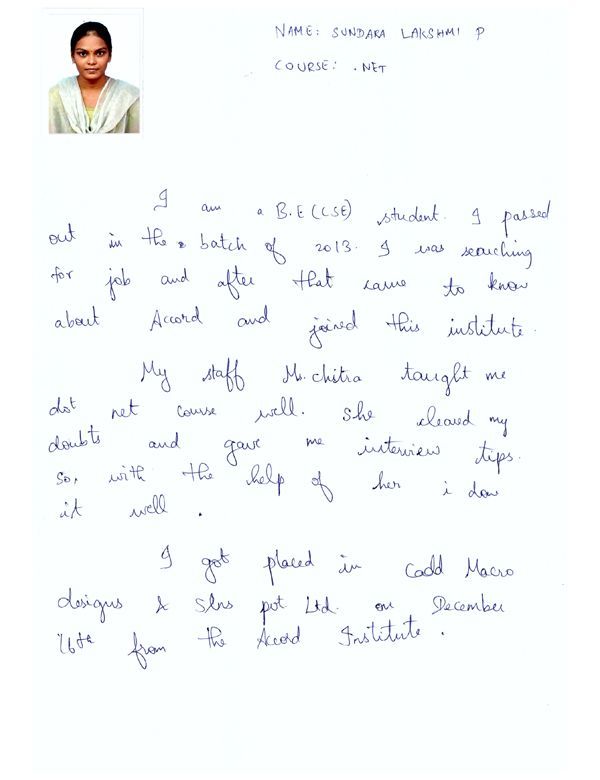 NAME: SUNDARA LAKSHMI P
COURSE: .NET
I am a B.E (CSE) student. I passed
out in the batch of 2013. I was searching
for job and after that came to know
about Accord and joined this institute.
My staff Ms. Chitra taught me
dot net course well. She cleared my
doubts and gave me interview tips.
So, with the help of her i don
it well.
I got placed in Cadd Macro
designs & Slns pvt Ltd. on December
16th from the Accord Institute.